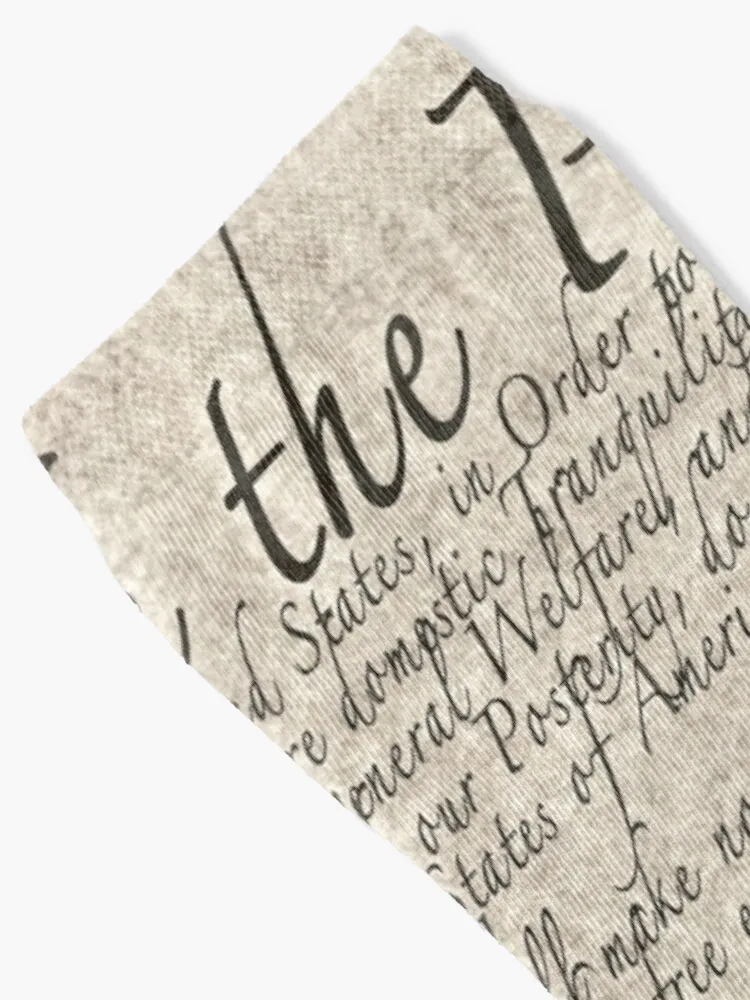 the
d States, in Order to
re domestic Tranquilit
eneral Welfare, and
our Posterity, do
States of Ameri
ll make no
free e